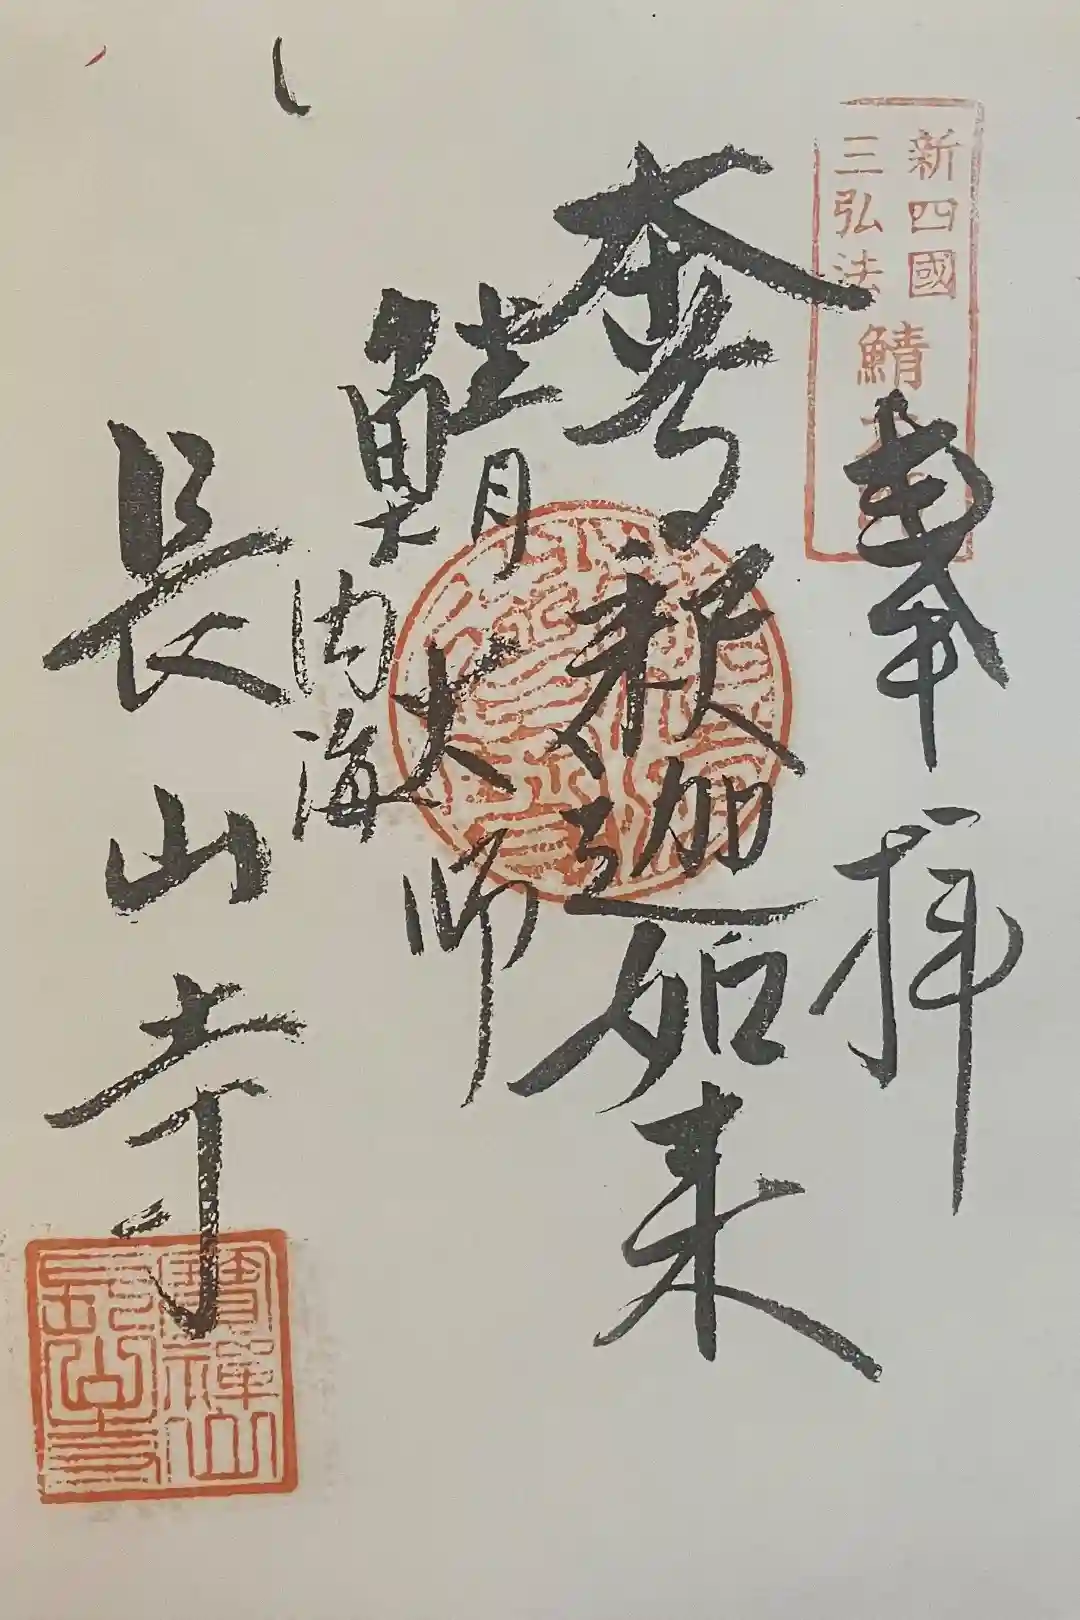 新四國
三弘法
鯖大
奉拝
本尊釈迦如来
鯖大師
内海
長山寺
寶禪山
長山寺